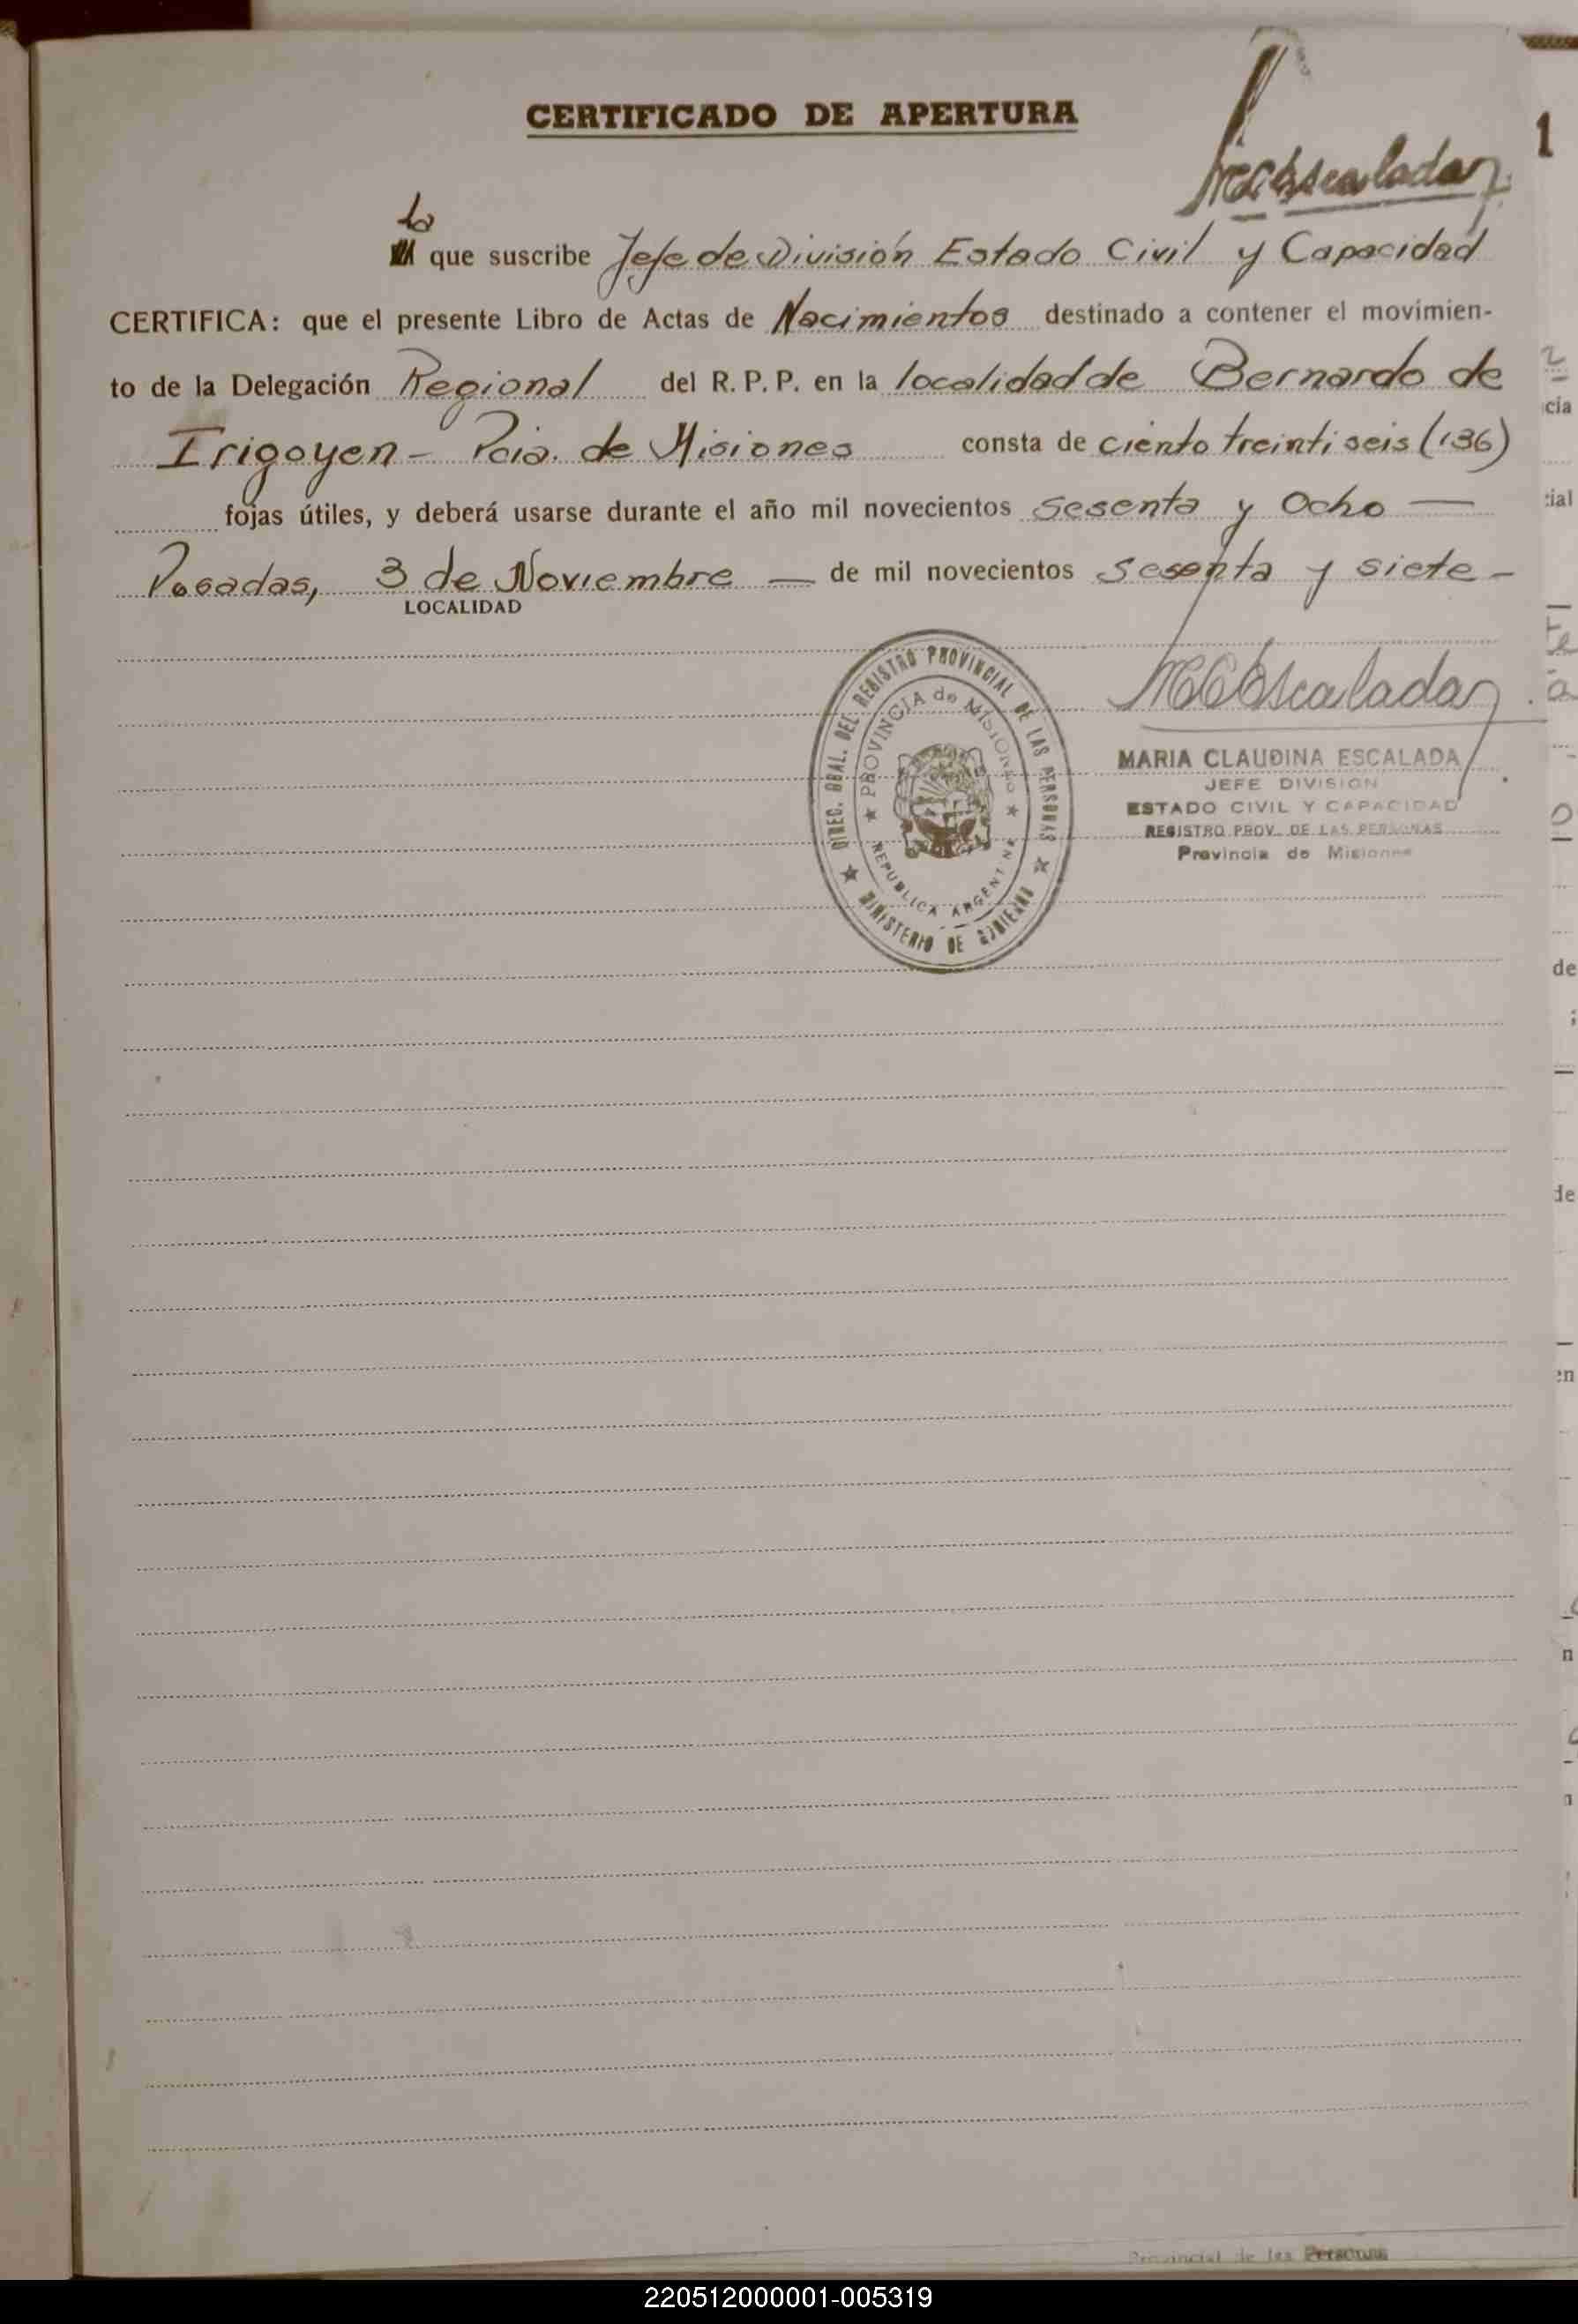 CERTIFICADO DE APERTURA
1
MCEscalada
La
que suscribe Jefe de División Estado Civil y Capacidad
CERTIFICA: que el presente Libro de Actas de Nacimientos destinado a contener el movimien-
to de la Delegación Regional del R. P. P. en la localidad de Bernardo de
Irigoyen - Pcia. de Misiones consta de ciento treinti seis (136)
fojas útiles, y deberá usarse durante el año mil novecientos sesenta y Ocho —
Posadas, 3 de Noviembre — de mil novecientos sesenta y siete -
LOCALIDAD
DIREC. GRAL. DEL REGISTRO PROVINCIAL DE LAS PERSONAS
PROVINCIA de MISIONES
REPUBLICA ARGENTINA
MINISTERIO DE GOBIERNO
MCEscalada
MARIA CLAUDINA ESCALADA
JEFE DIVISION
ESTADO CIVIL Y CAPACIDAD
REGISTRO PROV. DE LAS PERSONAS
Provincia de Misiones
cia
cial
de
de
en
n
Provincial de las Personas
220512000001-005319